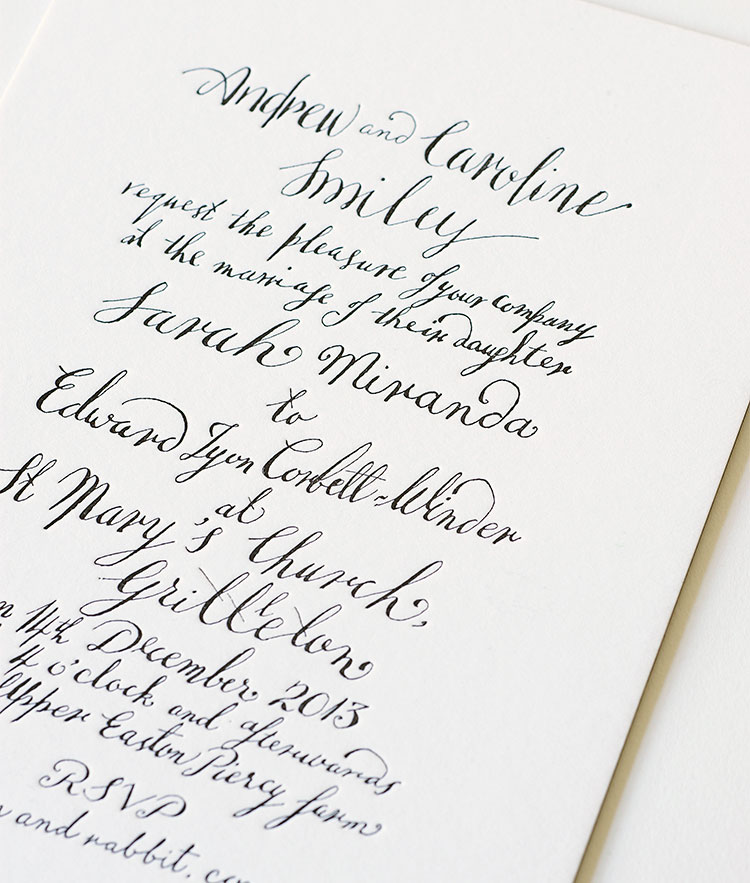 Andrew and Caroline
Smiley
request the pleasure of your company
at the marriage of their daughter
Sarah Miranda
to
Edward Lyon Corbett-Winder
at
St Mary's Church,
Grittleton
14th December 2013
4 o'clock and afterwards
Upper Easton Piercy farm
RSVP
and rabbit.